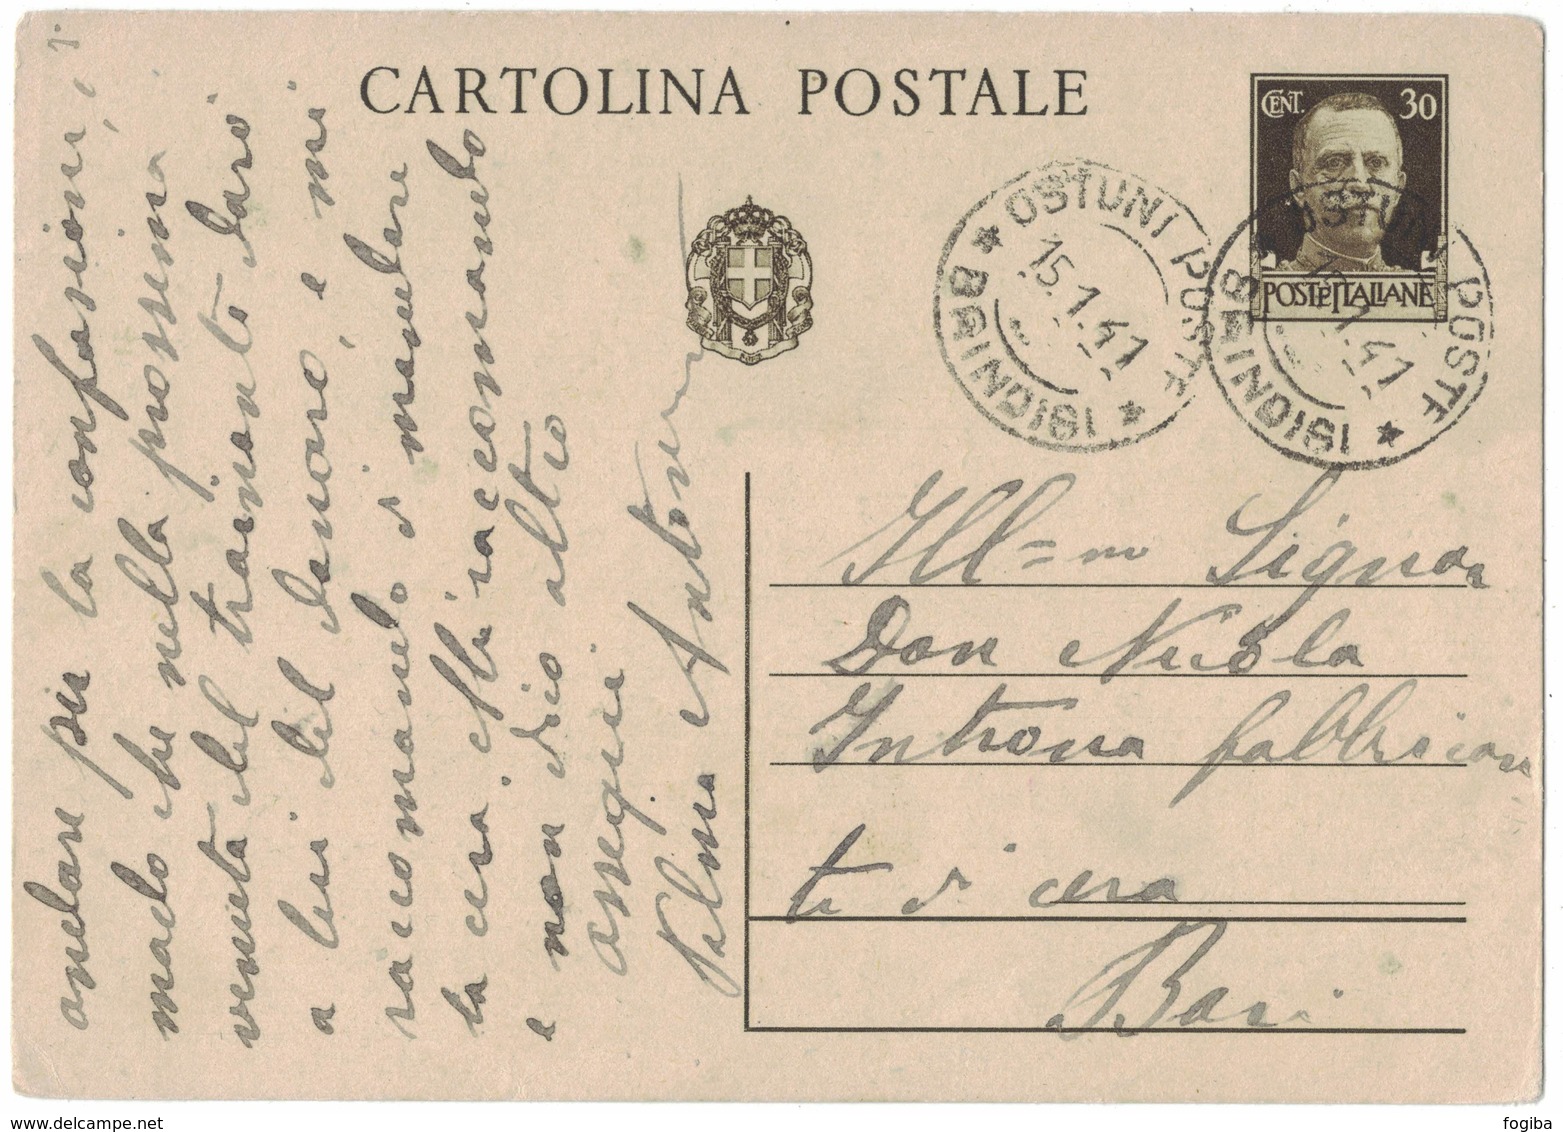 CARTOLINA POSTALE
CENT. 30
POSTE ITALIANE
OSTUNI POSTE
15.1.41
* BRINDISI *
OSTUNI POSTE
1.41
BRINDISI *
Ill=mo Signor
Don Nicola
Introna fabbrican
te di cera
Bari
andare per la confusione,
mado che nella prossima
venuta del trainonto daro
a lui del danaro, e mi
raccomando di mandare
la cera, e mi raccomando
e non dico altro
ossequii
Palma Antonio
fogiba